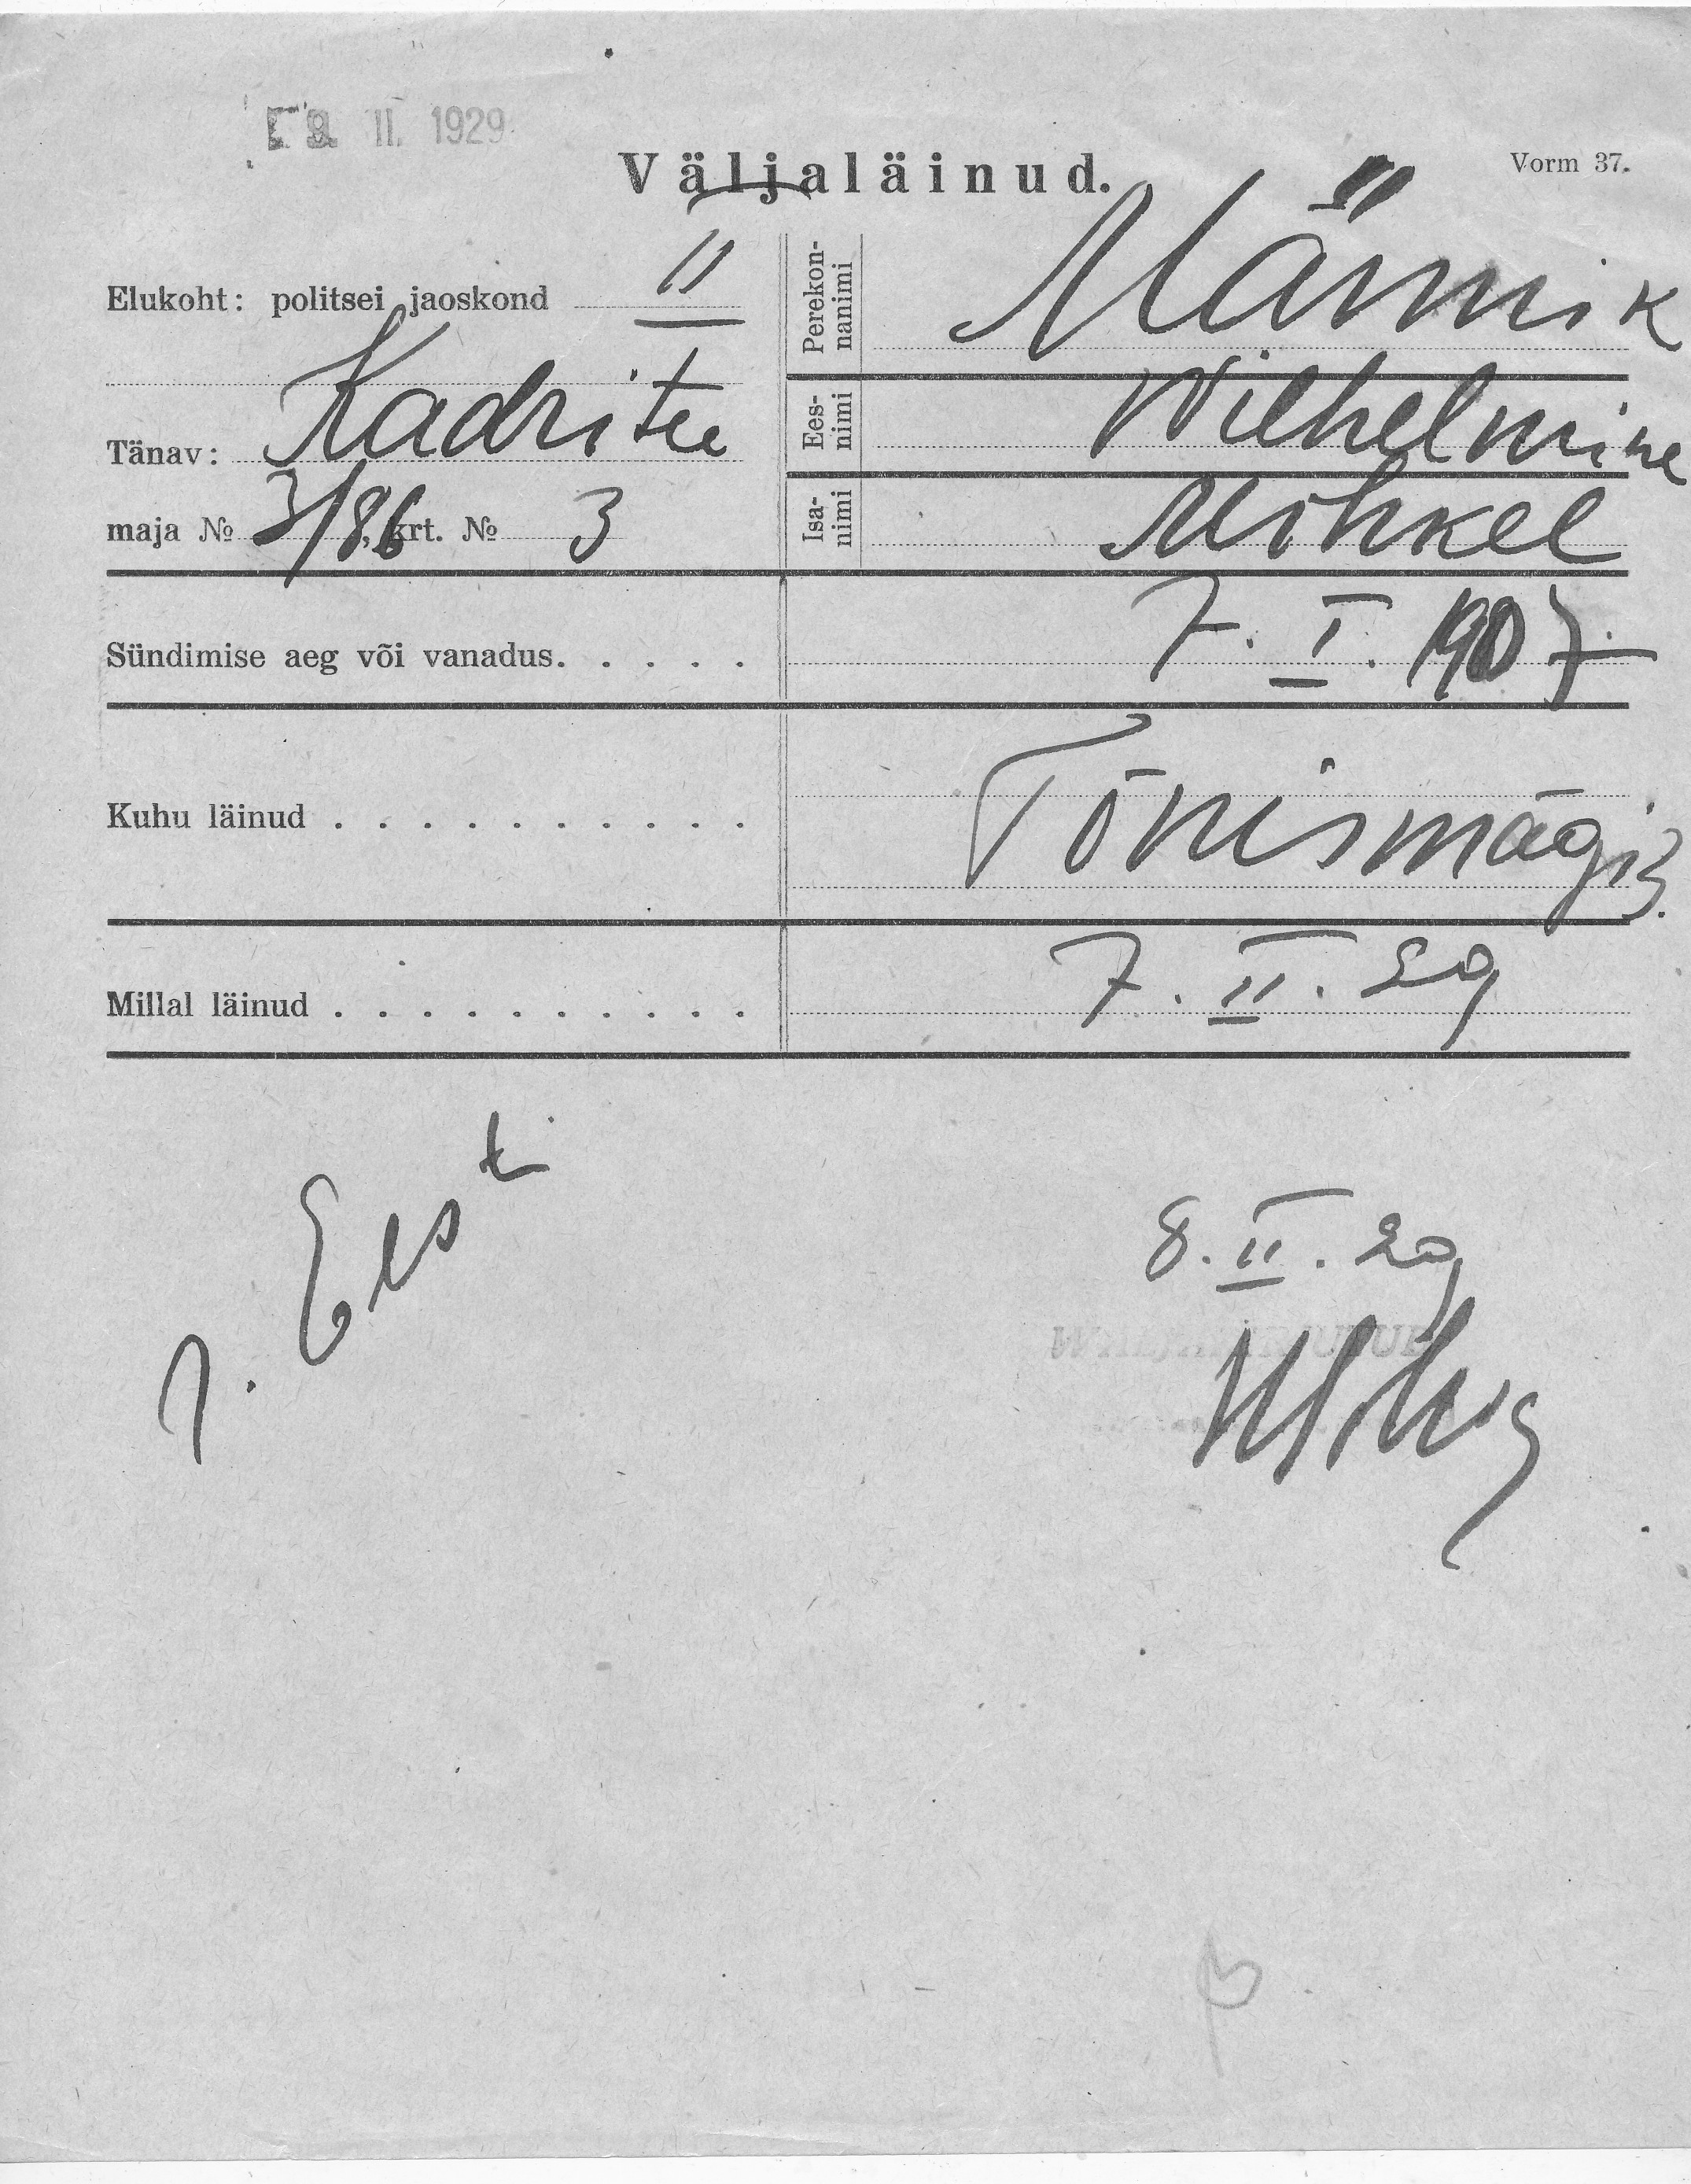 9. II. 1929
Väljaläinud.
Vorm 37.
Elukoht: politsei jaoskond II
Tänav: Kadri tee
maja № 3/86, krt. № 3
Perekonnanimi Männik
Eesnimi Wilhelmine
Isanimi Mihkel
Sündimise aeg või vanadus. . . . . 7. I. 1907
Kuhu läinud . . . . . . . . . . Tõnismägi 3.
Millal läinud . . . . . . . . . . 7. II. 29
1. Eesti
8. II. 29